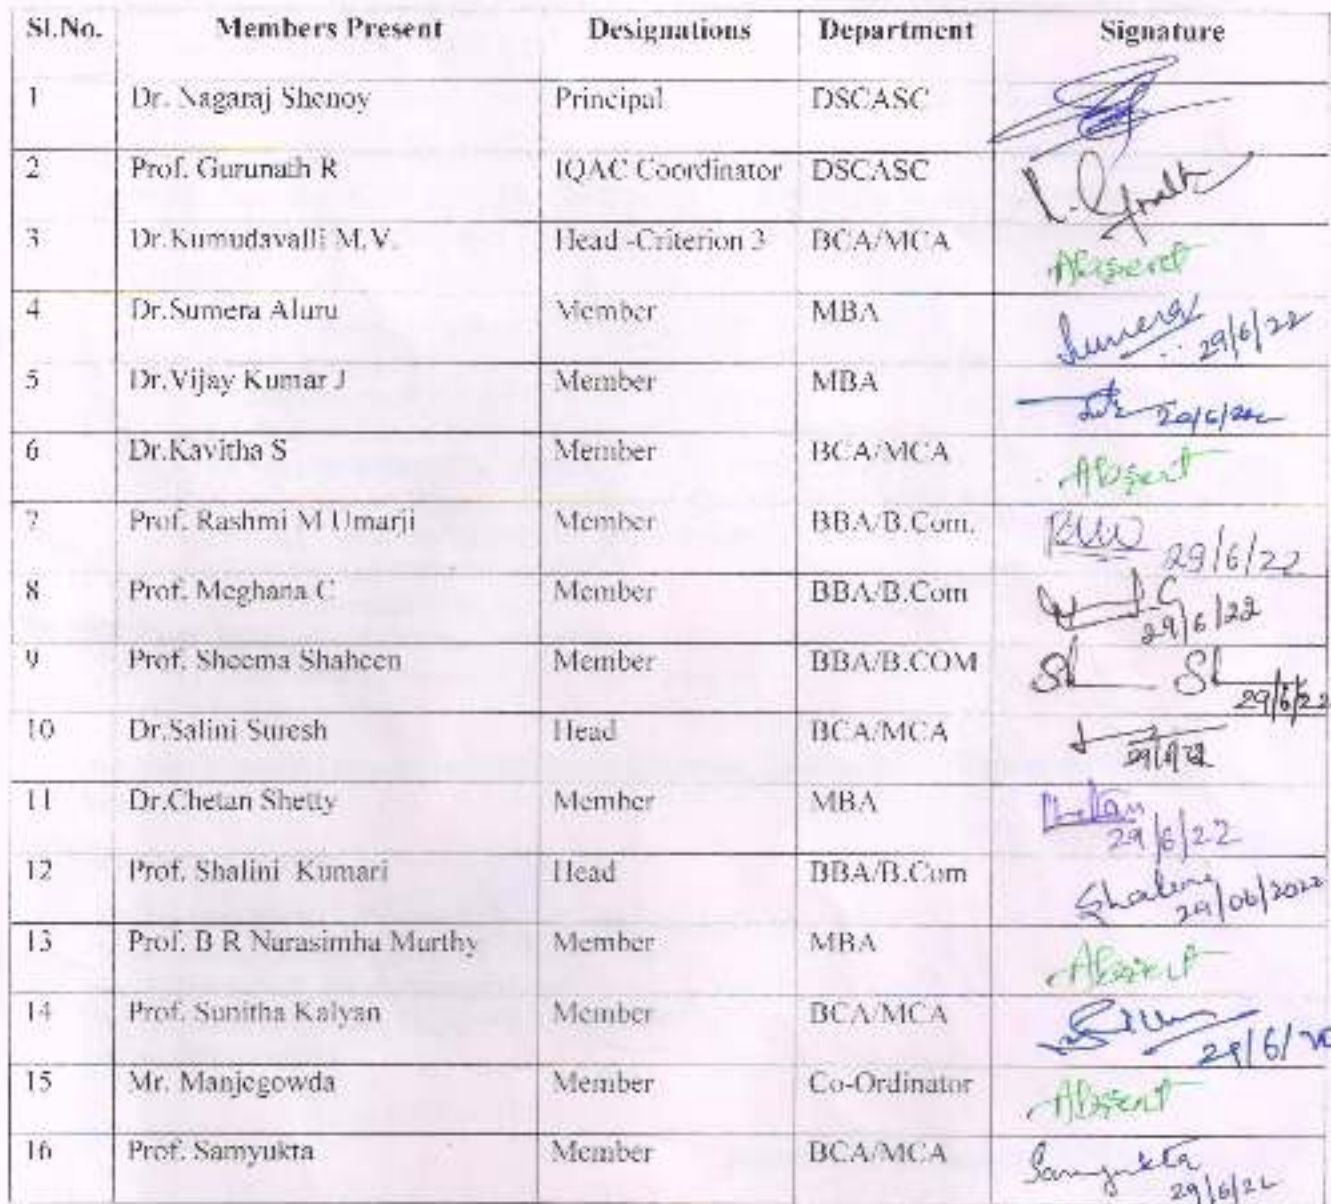 Sl.No. Members Present Designations Department Signature
1 Dr. Nagaraj Shenoy Principal DSCASC
2 Prof. Gurunath R IQAC Coordinator DSCASC
3 Dr.Kumudavalli M.V. Head -Criterion 3 BCA/MCA Absent
4 Dr.Sumera Aluru Member MBA Sumera 29/6/22
5 Dr.Vijay Kumar J Member MBA 29/6/22
6 Dr.Kavitha S Member BCA/MCA Absent
7 Prof. Rashmi M Umarji Member BBA/B.Com. 29/6/22
8 Prof. Meghana C Member BBA/B.Com 29/6/22
9 Prof. Sheema Shaheen Member BBA/B.COM 29/6/22
10 Dr.Salini Suresh Head BCA/MCA
11 Dr.Chetan Shetty Member MBA 29/6/22
12 Prof. Shalini Kumari Head BBA/B.Com Shalini 29/06/2022
13 Prof. B R Narasimha Murthy Member MBA Absent
14 Prof. Sunitha Kalyan Member BCA/MCA
15 Mr. Manjegowda Member Co-Ordinator Absent
16 Prof. Samyukta Member BCA/MCA Samyukta 29/6/22